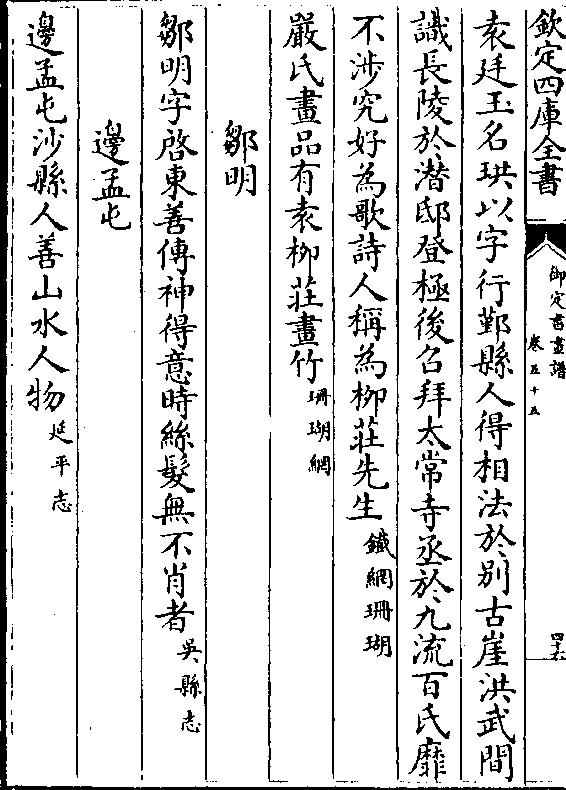 欽定四庫全書
御定書畫譜
卷五十五
四十六
袁廷玉名珙以字行鄞縣人得相法於別古崖洪武間
識長陵於潛邸登極後召拜太常寺丞於九流百氏靡
不涉究好為歌詩人稱為柳莊先生 鐵網珊瑚
嚴氏畫品有袁柳莊畫竹 珊瑚網
鄒明
鄒明字啓東善傳神得意時絲髮無不肖者 吳縣志
邊孟屯
邊孟屯沙縣人善山水人物 延平志